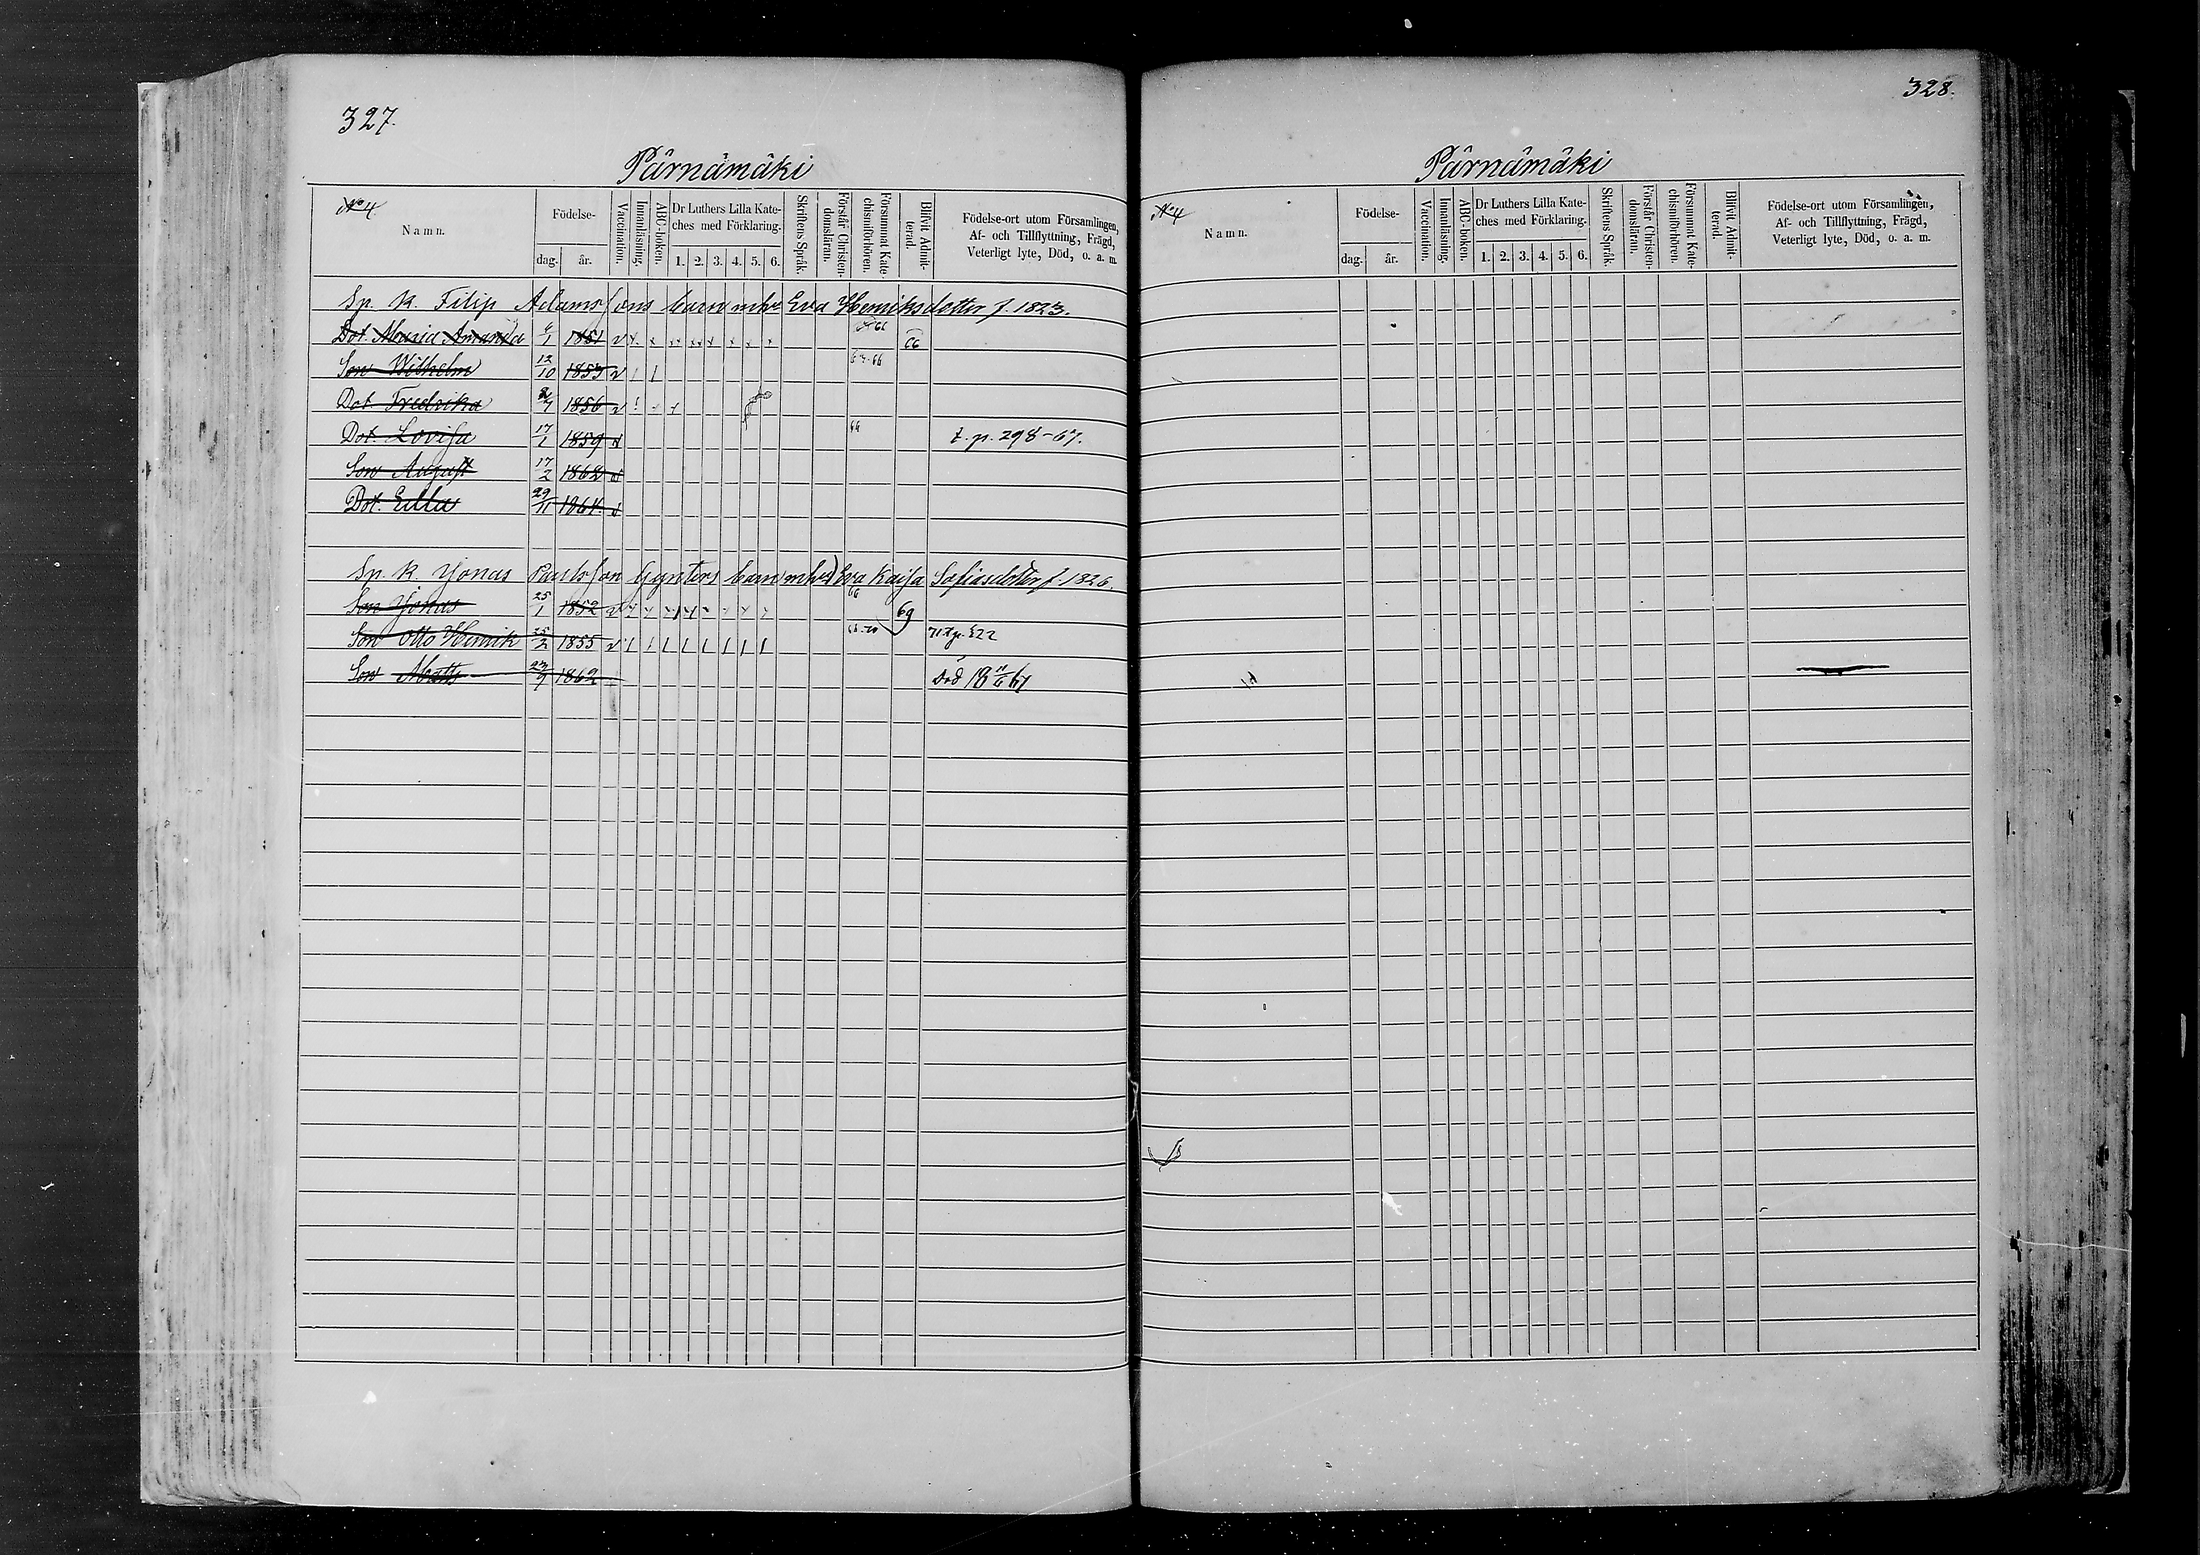 327.
Pärnämäki
No 4
Namn.
Födelse-
dag.
år.
Vaccination.
Innanläsning.
ABC-boken.
Dr Luthers Lilla Kate-
ches med Förklaring.
1. 2. 3. 4. 5. 6.
Skriftens Språk.
Förstår Christen-
domsläran.
Försummat Kate-
chismiförhören.
Blifvit Admit-
terad.
Födelse-ort utom Församlingen,
Af- och Tillflyttning, Frägd,
Veterligt lyte, Död, o. a. m.
Sp. k. Filip Adamssons barn mhu Eva Henriksdotter f. 1823.
Dot. Maria Amanda 1851 v 66
Son Wilhelm 12/10 1853 v
Dot. Fredrika 1856 v
Dot. Lovisa 17/1 1859 v 66 t. p. 298-67.
Son August 17/2 1862 v
Dot. Ulla 29/11 1864 v
Sp. k. Jonas Paulsson Gynters barn mhu Eva Kajsa Sofiasdotter f. 1826.
Son Jonas 25/1 1852 v 66 69
Son Otto Henrik 25/2 1855 v 71 t.p. 522
Son Matts 23/9 1862 Död
328.
Pärnämäki
No 4
Namn.
Födelse-
dag.
år.
Vaccination.
Innanläsning.
ABC-boken.
Dr Luthers Lilla Kate-
ches med Förklaring.
1. 2. 3. 4. 5. 6.
Skriftens Språk.
Förstår Christen-
domsläran.
Försummat Kate-
chismiförhören.
Blifvit Admit-
terad.
Födelse-ort utom Församlingen,
Af- och Tillflyttning, Frägd,
Veterligt lyte, Död, o. a. m.